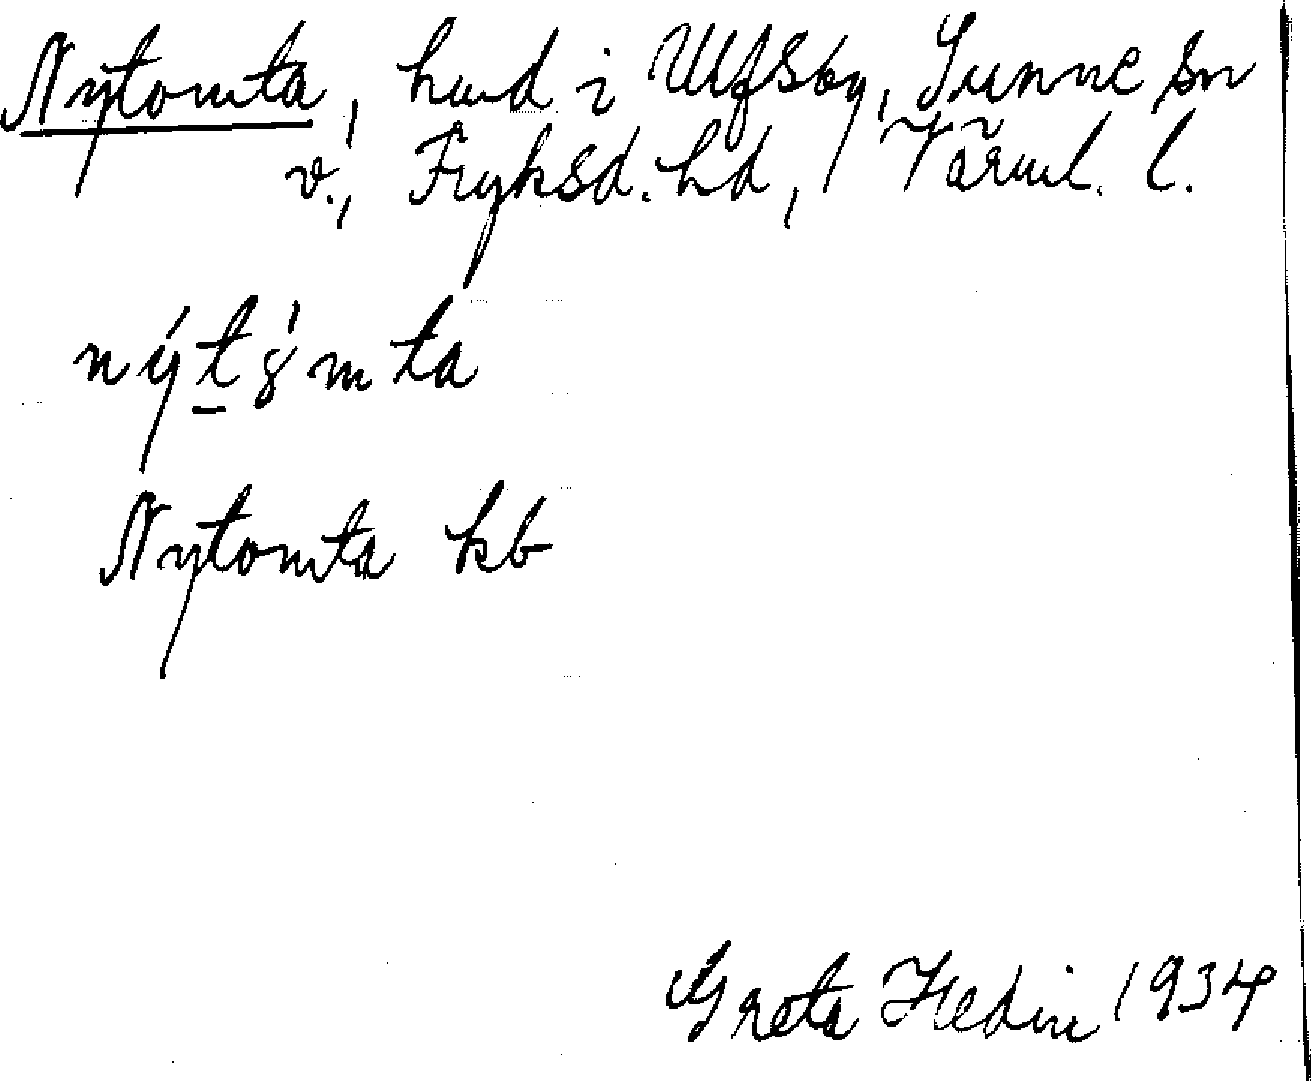 Nytomta, hmd i Ulfsby, Sunne sn
v., Fryksd. hd, Värml. l.
nýtǫ́mta
Nytomta kb
Greta Hedin 1934